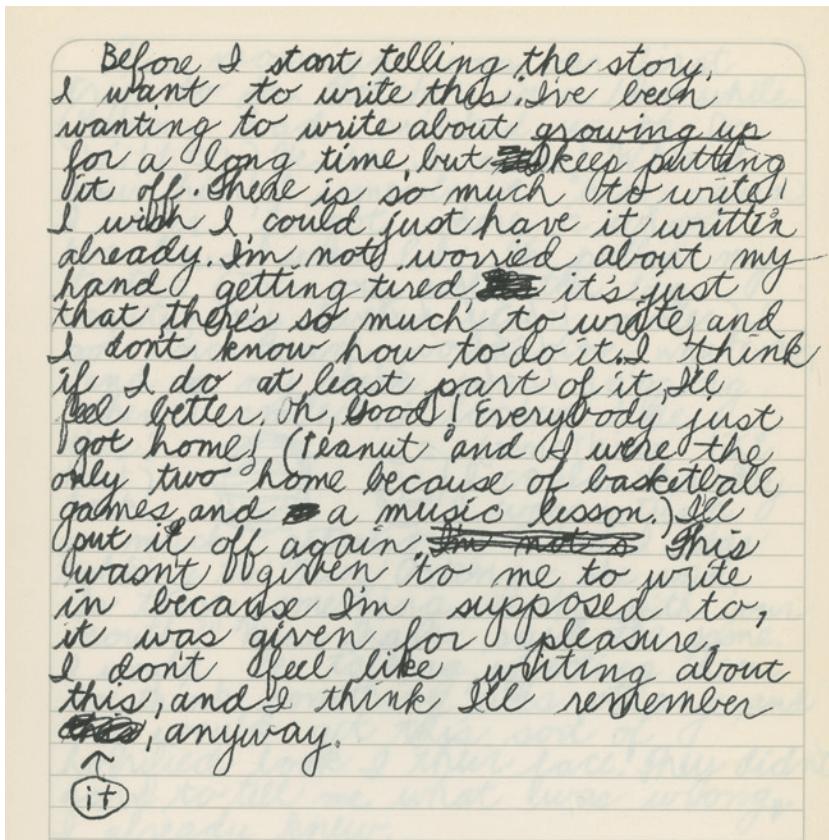 Before I start telling the story,
I want to write this. I've been
wanting to write about growing up
for a long time, but keep putting
it off. There is so much to write!
I wish I could just have it written
already. I'm not worried about my
hand getting tired it's just
that there's so much to write, and
I don't know how to do it. I think
if I do at least part of it, I'll
feel better. Oh, Good! Everybody just
got home! (Peanut and I were the
only two home because of basketball
games, and a music lesson.) I'll
put it off again. I'm not s This
wasn't given to me to write
in because I'm supposed to,
it was given for pleasure.
I don't feel like writing about
this, and I think I'll remember
this, anyway.
↑
it